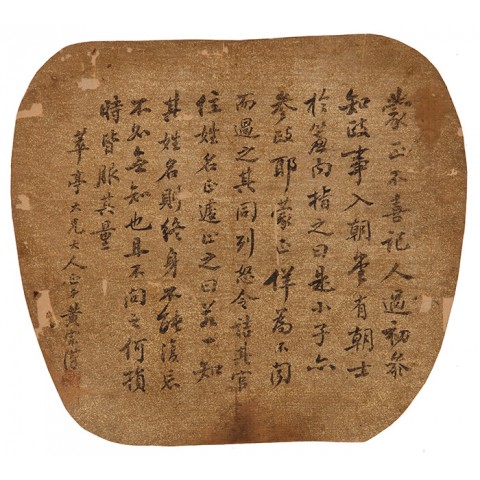 蒙正不喜記人過初參
知政事入朝堂有朝士
於簾内指之曰是小子亦
參政耶蒙正佯為不聞
而過之其同列怒令詰其官
位姓名正遽止之曰若一知
其姓名則終身不能復忘
不如無知也且不問之何損
時皆服其量
苹亭大兄大人正之黃宗漢